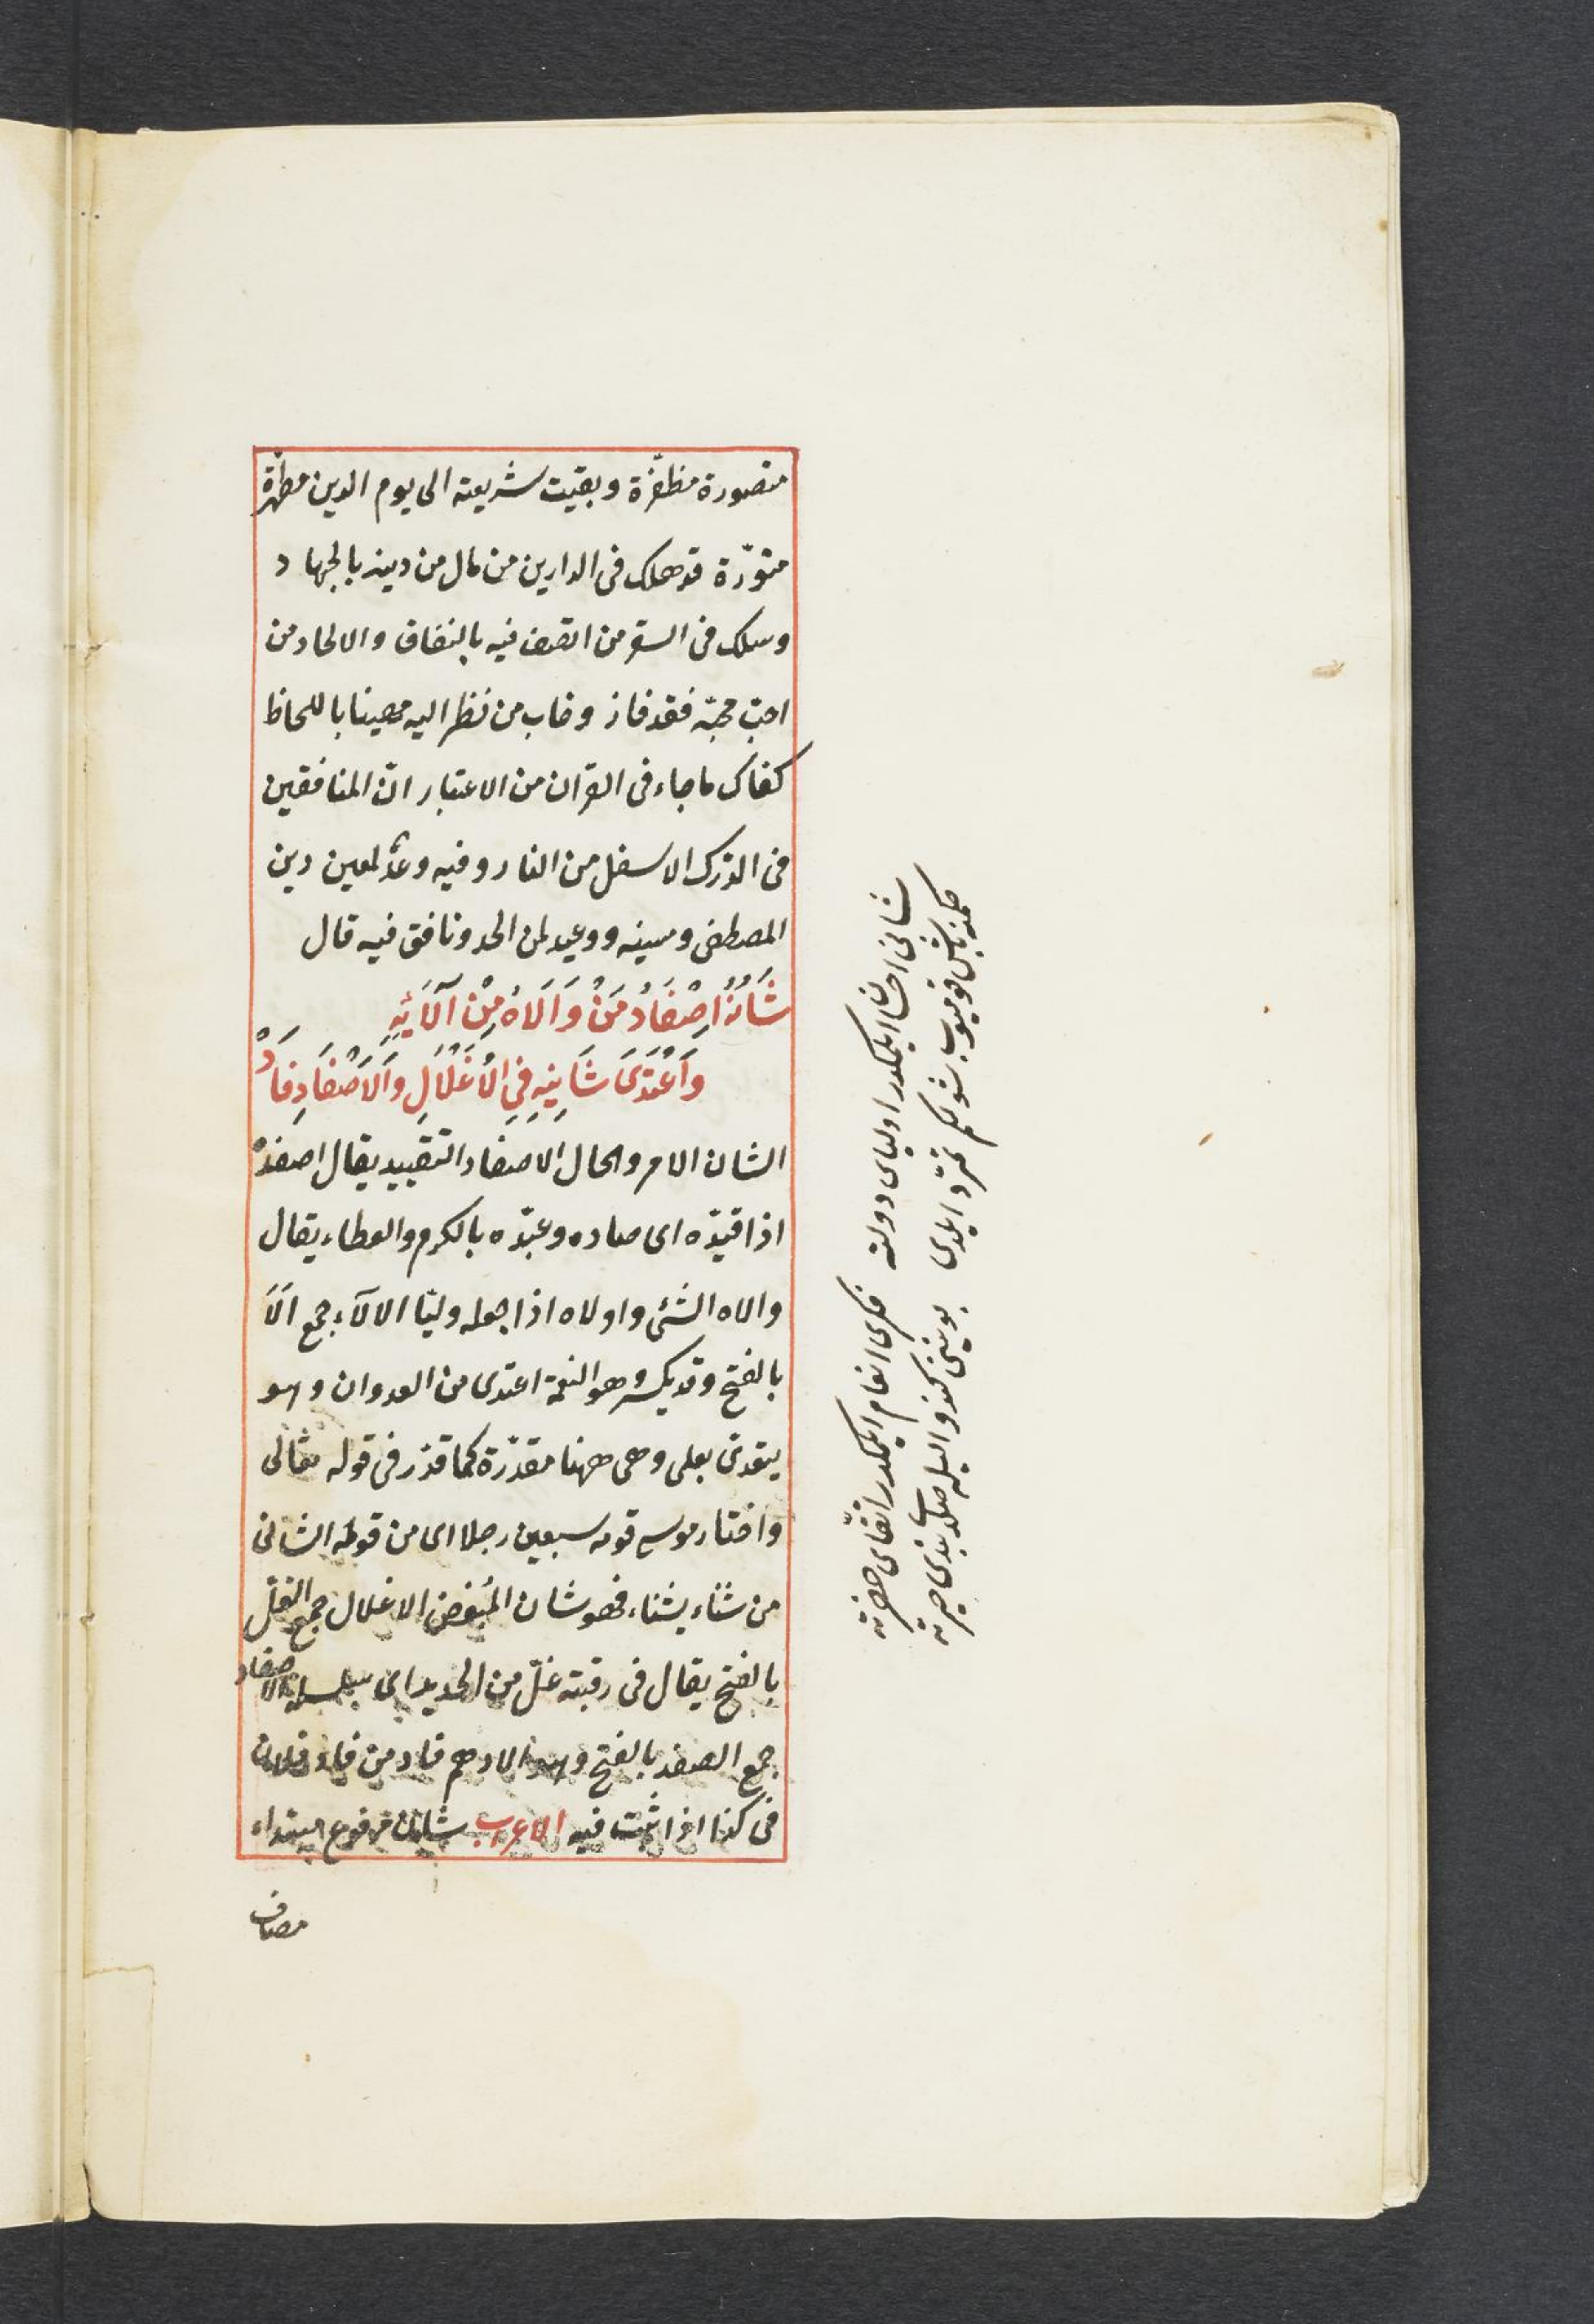 منصورة مظفّرة وبقيت شريعته الى يوم الدين مطهّرة
منوّرة قد هلك فى الدارين من مال من دينه بالجهاد
وسلك فى السقر من اتصف فيه بالنفاق والالحاد من
احبّ محبّه فقد فاز وخاب من نظر اليه مهينا باللحاظ
كفاك ما جاء فى القرآن من الاعتبار انّ المنافقين
فى الدرك الاسفل من النار وفيه وعدٌ لمعين دين
المصطفى ومبينه ووعيد لمن الحد ونافق فيه قال
شَاْنُهُ اِصْفَادُ مَنْ وَالَاهُ مِنْ آلَائِهِ
وَاَعْتَدَى شَانِيهِ فِى الْاَغْلَالِ وَالْاَصْفَادِ فَادْ
الشان الامر والحال الاصفاد التقييد يقال اصفدْ
اذا قيّده اى صاده وعبّده بالكرم والعطاء يقال
والاه الشئ واولاه اذا جعله وليّا الالآء جمع اَلَا
بالفتح وقد يكسر وهو النعمة اعتدى من العدوان وهو
يتعدى بعلى وهى ههنا مقدّرة كما قدّر فى قوله تعالى
واختار موسى قومه سبعين رجلا اى من قومه الشانى
من شناء يشناء فهو شان المُبغض الاغلال جمع الغلّ
بالفتح يقال فى رقبته غلّ من الحديد اى سلسلة الاصفاد
جمع الصفد بالفتح وهو الادهم فاد من فاد فلان
فى كذا اذا ثبت فيه الاعراب شانه مرفوع مبتداء
مضاف
شانى احسان ايلمكدر اولياى دولته
فكرى انعام ايلمكدر اتقياى حضرته